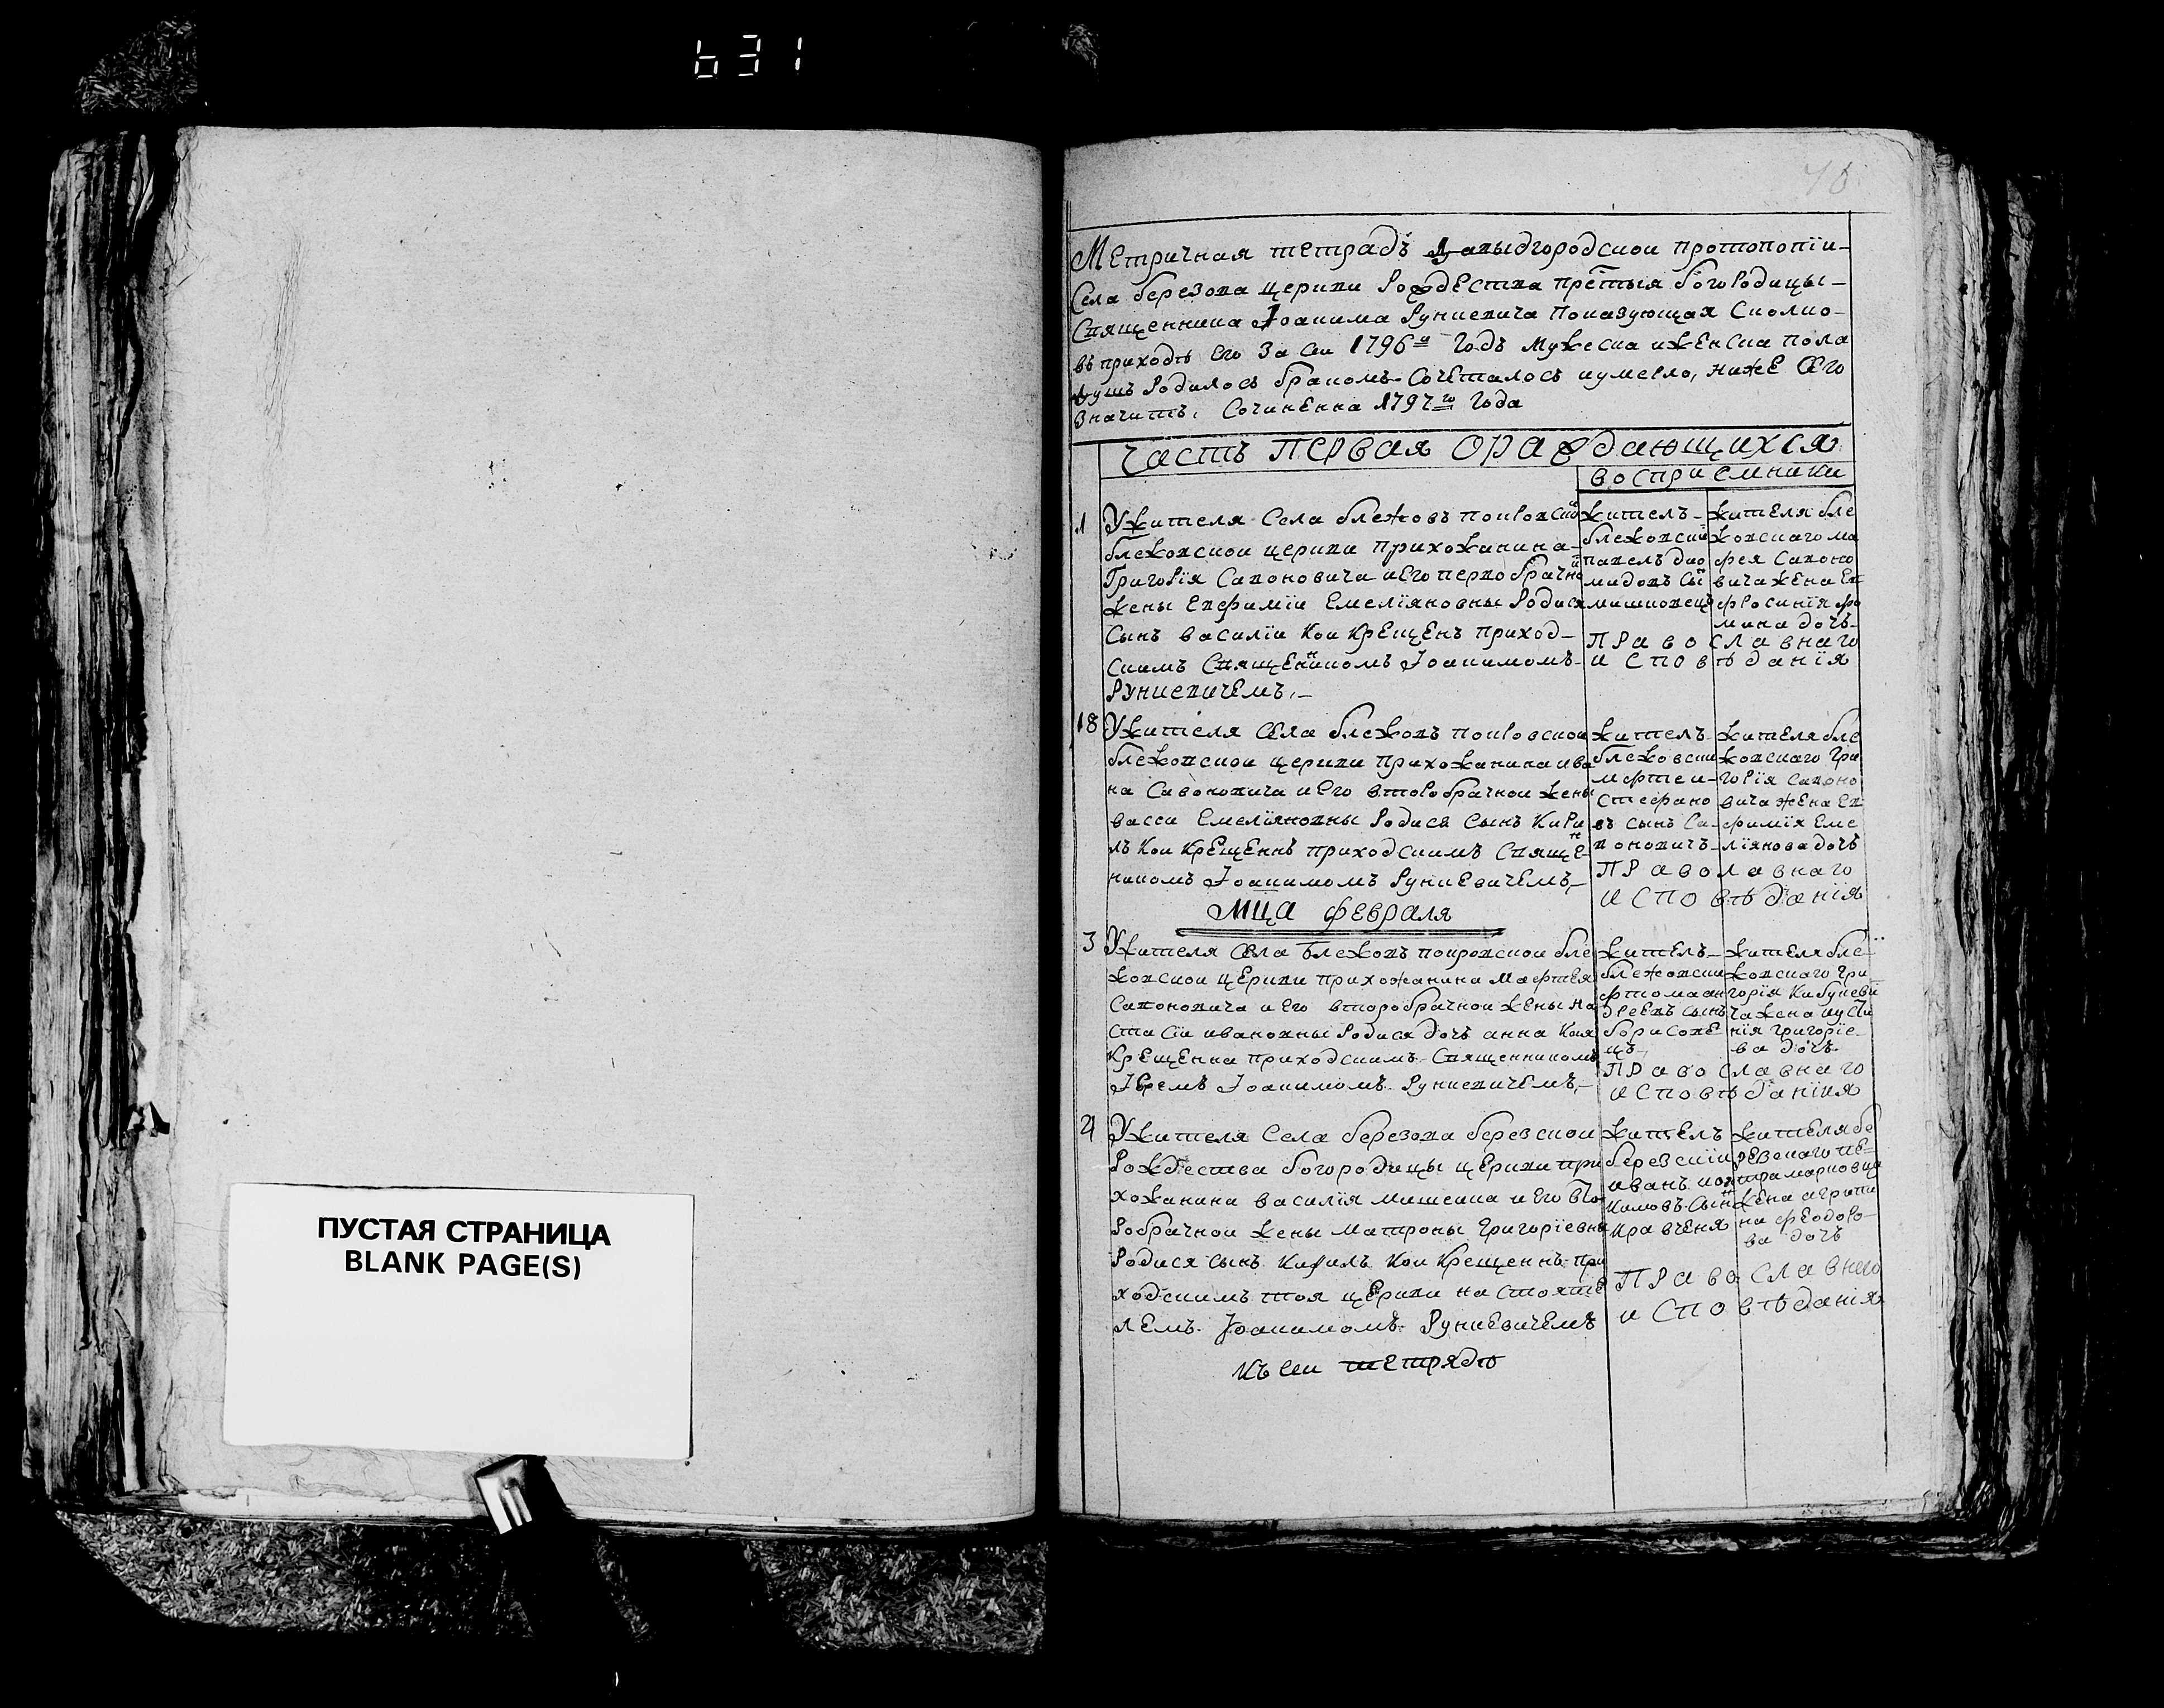 631
ПУСТАЯ СТРАНИЦА
BLANK PAGE(S)
Метричная тетрадъ давыдгородскои протопопїи
Села березова церкви Рождества прет̃ыя богородицы
Священника Іоакима Рункевича показующая Сколко
въ приходѣ его За сеи 1796й Годъ мужеска иженска пола
душъ Родилось бракомъ Сочеталось иумерло, ниже Сего
Значитъ. Сочиненна 1797го Года
Часть первая Ораждающихся
восприемники
1
Ужителя Села блежовъ покровской
блежовскои церкви прихожанина
Григорїя Савоновича иего первобрачной
жены Евфимїи Емелїяновны Родися
Сынъ василїи кои крещенъ приход-
скимъ Священникомъ Іоакимомъ
Рункевичемъ.
житель
блежовскии
павелъ дио
мидовъ Сы̃
мишковецъ
жителя бле
жовскаго ма
фея Савоно
вича жена Ев
фросинїя фо
мина дочь
Православнаго
исповѣданїя
18
Ужителя Села блежовъ покровскои
блежовскои церкви прихожанина ива
на Савоновича иего второбрачнои жены
васси Емелїяновны Родися Сынъ Кири
лъ кои крещеннъ приходскимъ Священ
никомъ Іоакимомъ Рункевичемъ
житель
блежовскии
мфтеи
Стефано
въ сынъ Са
воновичъ
жителя бле
жовскаго Гри
горїя Савоно
вича жена Ев
фимїя Еме
лїянова дочъ
Праволавнаго
исповѣданїя
Мца февраля
3
Ужителя Села Блежовъ покровскои бле
жовскои церкви прихожанина Мафтея
Савоновича и его второбрачнои жены На
стасїи ивановны Родися дочъ анна коя
крещенна приходскимъ Священникомъ
Іереемъ Іоакимомъ Рункевичемъ
житель
блежовскии
фтома ан
дреевъ сынъ
борисове
цъ
жителя бле
жовскаго Гри
горїя Кибукеви
ча жена иусти
нїя григорїе
ва дочъ
Православнаго
исповѣданїия
21
Ужителя Села березова березскои
Рождества богородицы церкви при
хожанина василїя мишеика и его вто
робрачнои жены матроны Григорїевны
Родися сынъ Кирилъ кои крещеннъ при
ходскимъ тоя церкви настояте
лемъ Іоакимомъ Рункевичемъ
житель
березскїи
иванъ
сынъ
кравченя
жителя бе
резскаго пе
тра марковича
жена агрипи
на феодоро
ва дочъ
Православнаго
исповѣданїя
къ сеи тетрядѣ